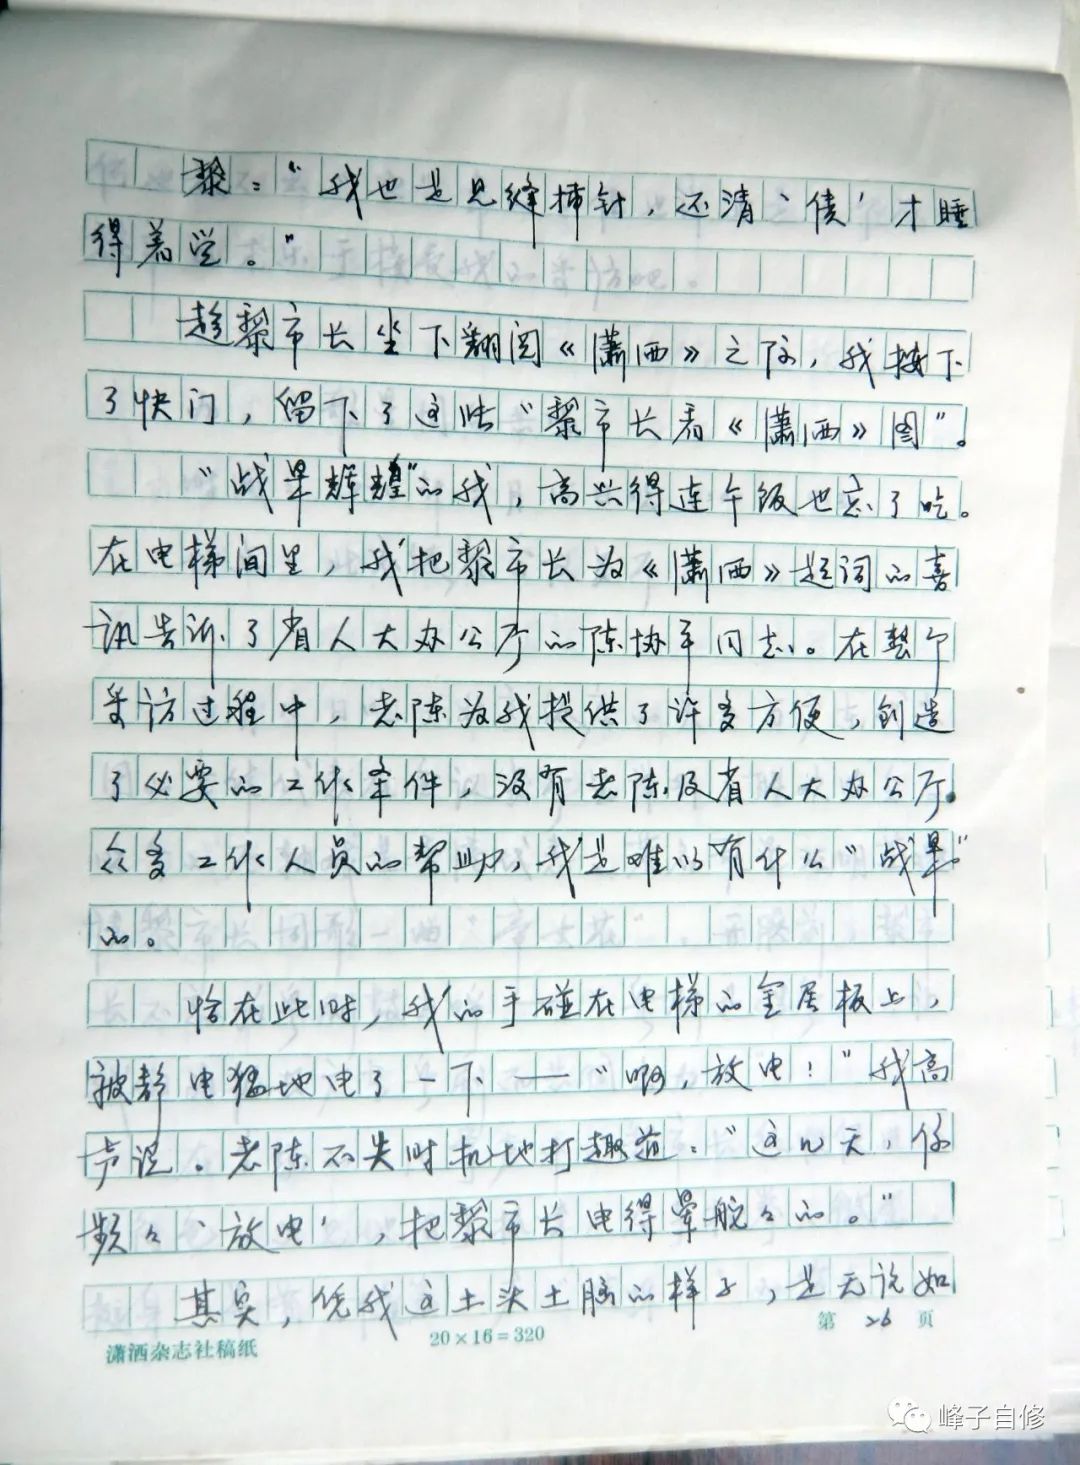 黎：“我也是见缝插针，还清‘债’才睡
得着觉。”
趁黎市长坐下翻阅《潇洒》之际，我按下
了快门，留下了这张“黎市长看《潇洒》图”。
“战果辉煌”的我，高兴得连午饭也忘了吃。
在电梯间里，我把黎市长为《潇洒》题词的喜
讯告诉了省人大办公厅的陈协平同志。在整个
采访过程中，老陈为我提供了许多方便，创造
了必要的工作条件，没有老陈及省人大办公厅
众多工作人员的帮助，我是难以有什么“战果”
的。
恰在此时，我的手碰在电梯的金属板上，
被静电猛地电了一下——“啊，放电！”我高
声说。老陈不失时机地打趣道：“这几天，你
频々‘放电’，把黎市长电得晕舵々的。”
其实，凭我这土头土脑的样子，是无论如
潇洒杂志社稿纸 20×16=320 第 26 页
峰子自修